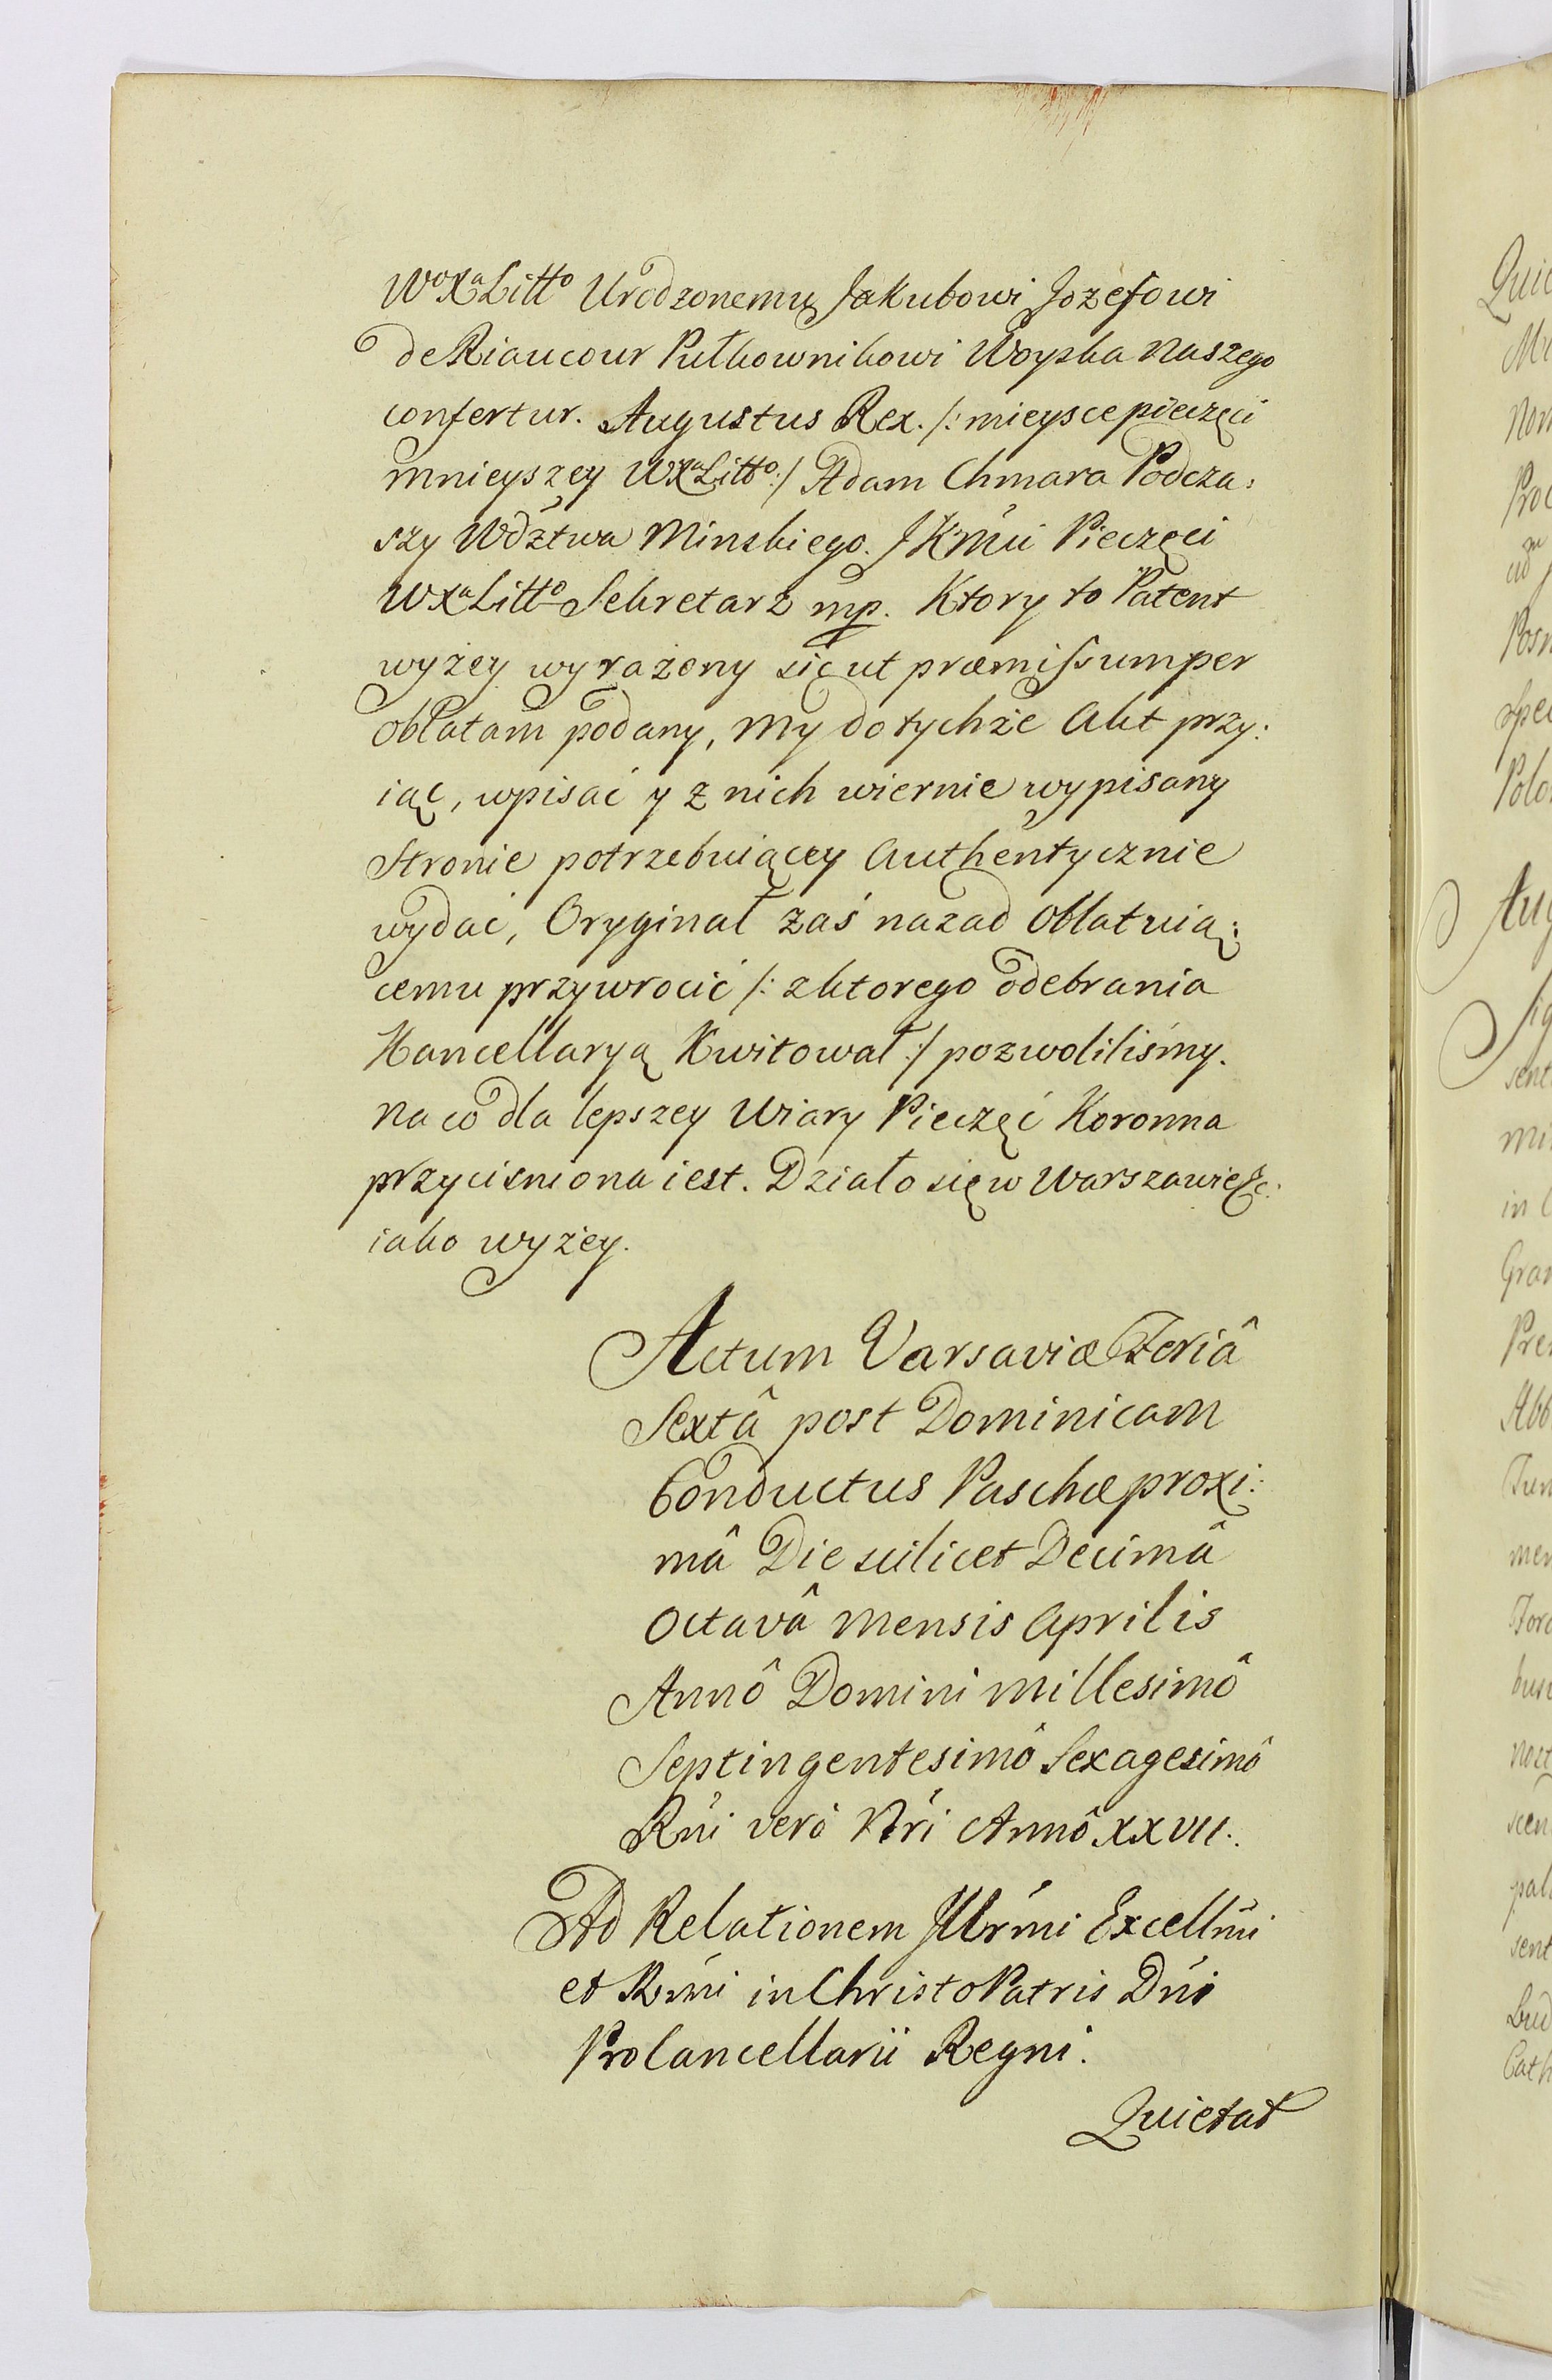 WoXaLitto Urodzonemu Jakubowi Jozefowi
de Riaucour Pułkownikowi Woyska Naszego
confertur. Augustus Rex. /: mieysce pieczęci
mnieyszey WXaLitto :/ Adam Chmara Podcza:
szy Wdztwa Minskiego. JKMći Pieczęci
WXaLitto Sekretarz mp. Ktory to Patent
wyżey wyrażony sicut præmissum per
Oblatam podany, My do tychże Akt przy:
iąć, wpisać y z nich wiernie wypisany
Stronie potrzebuiącey Authentycznie
wydać, Oryginał zaś nazad Oblatuią:
cemu przywrocić /: z ktorego odebrania
Kancellaryą Kwitował :/ pozwoliliśmy.
Na co dla lepszey Wiary Pieczęć Koronna
przyciśniona iest. Działo się w Warszawie &c:
iako wyżey.
Actum Varsaviæ Feriâ
Sextâ post Dominicam
Conductus Paschæ proxi:
mâ Die scilicet Decimâ
Octavâ Mensis Aprilis
Annô Domini Millesimô
Septingentesimô Sexagesimô
Rńi verò Nri Annô XXVII.
Ad Relationem Illrmi Excellmi
et Rmi in Christo Patris Dńi
ProCancellarii Regni.
Quietat